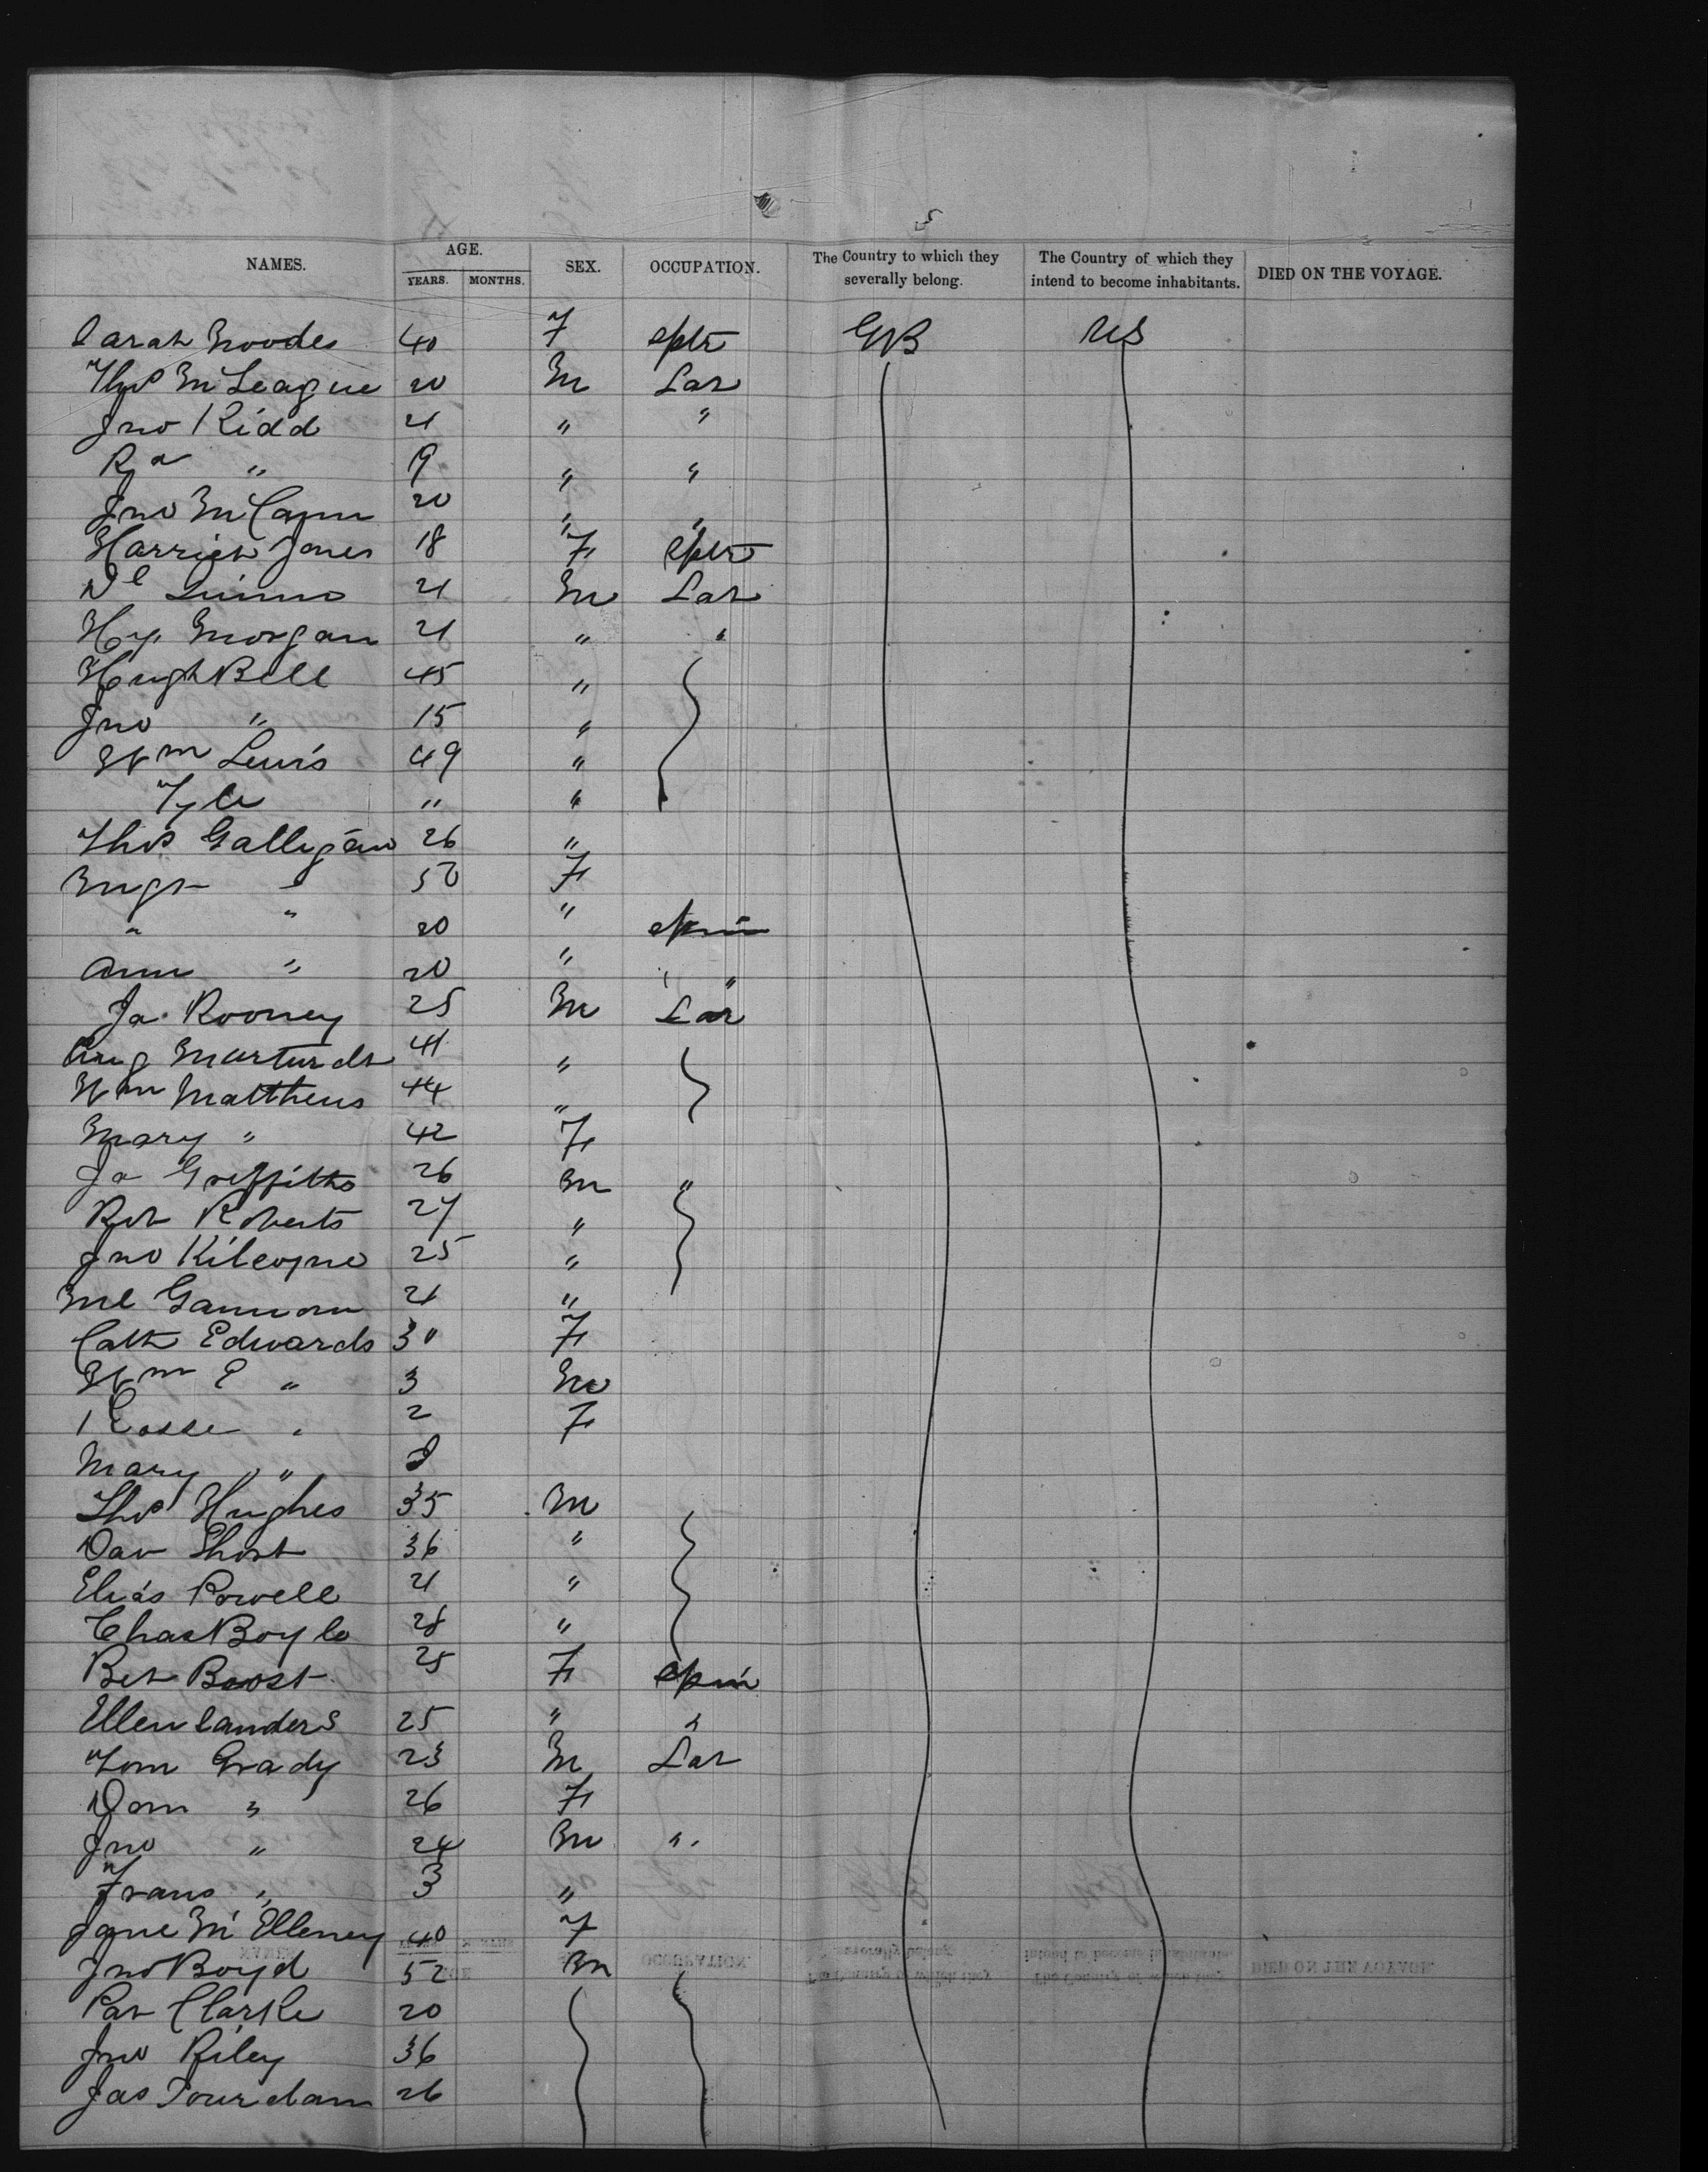 5
NAMES. AGE. YEARS. MONTHS. SEX. OCCUPATION. The Country to which they severally belong. The Country of which they intend to become inhabitants. DIED ON THE VOYAGE.
Sarah Woodes 40 F GB US
Thos McLeague 20 M Lar
Jno Kidd 21 " "
" 9 " "
Jno McCann 20 " "
Harriet Jones 18 F
Dl Quinn 21 M Lar
Hy Morgan 21 " "
Hugh Bell 45 "
Jno " 15 "
Wm Lewis 49 "
Tyle " "
Thos Galligan 26 "
Mgt " 50 F
" " 20 " spin
Ann " 20 " "
Ja Rooney 25 M Lar
41 "
Wm Matthews 44 "
Mary " 42 F
Ja Griffiths 26 M "
Rob Roberts 27 "
Jno Kilcoyne 25 "
Ml Gannon 21 "
Cath Edwards 30 F
Wm E " 3 M
2 F
Mary "
Thos Hughes 35 M
Dav Short 36 "
Elias Powell 21 "
Chas Boyle 28 "
Bet Boost 25 F spin
Ellen Landers 25 " "
Tom Grady 23 M Lar
" 26 F
Jno " 24 M "
Frans " 3 "
Jane McElleney 40 F
Jno Boyd 52 M
Pat Clarke 20
Jno Riley 36
Jas Jourdan 26